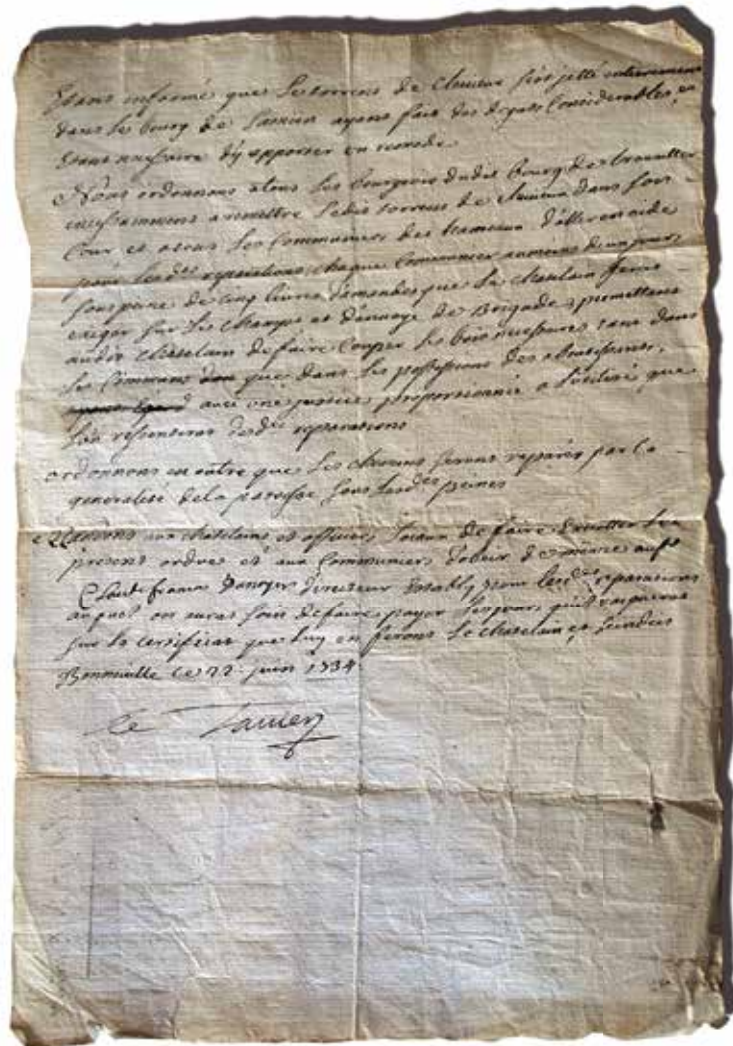 Etant informé que le torrent de Clevieux s'est jetté entierement
dans le bourg de Samoen ayant fait des degats Considerables, et
etant necessaire d'y apporter un remede
Nous ordonnons a tous les bourgeois dudit bourg de travailler
incessamment a remettre ledit torrent de Clevieux dans son
Cour, et a tous les Communiers des hameaux d'aller en aide
pour lesd.es reparations, chaque Communier au moins deux jours
sous peine de cinq livres d'amendes que le Chatelain fera
exiger sur les champs et d'envoye de Brigade, permettant
audit Chatelain de faire Couper les bois necessaires tant dans
les Communs que dans les possessions des aboutissants,
avec une justice proportionnée a l'utilité que
l'on ressentiras desd.es reparations
ordonnons en outre que les chemins seront reparés par la
generalité de la paroisse sous lesd.es peines
Mandons aux chatelains et officiers locaux de faire executer les
present ordres et aux Communiers d'obeir de meme au s.r
Claude francois directeur etably pour lesd.es reparations
auquel on auras soin de faire payer les jours qu'il vaqueras
sur le certificat que luy en feront le Chatelain et scindics
Bonneville ce 22 juin 1734